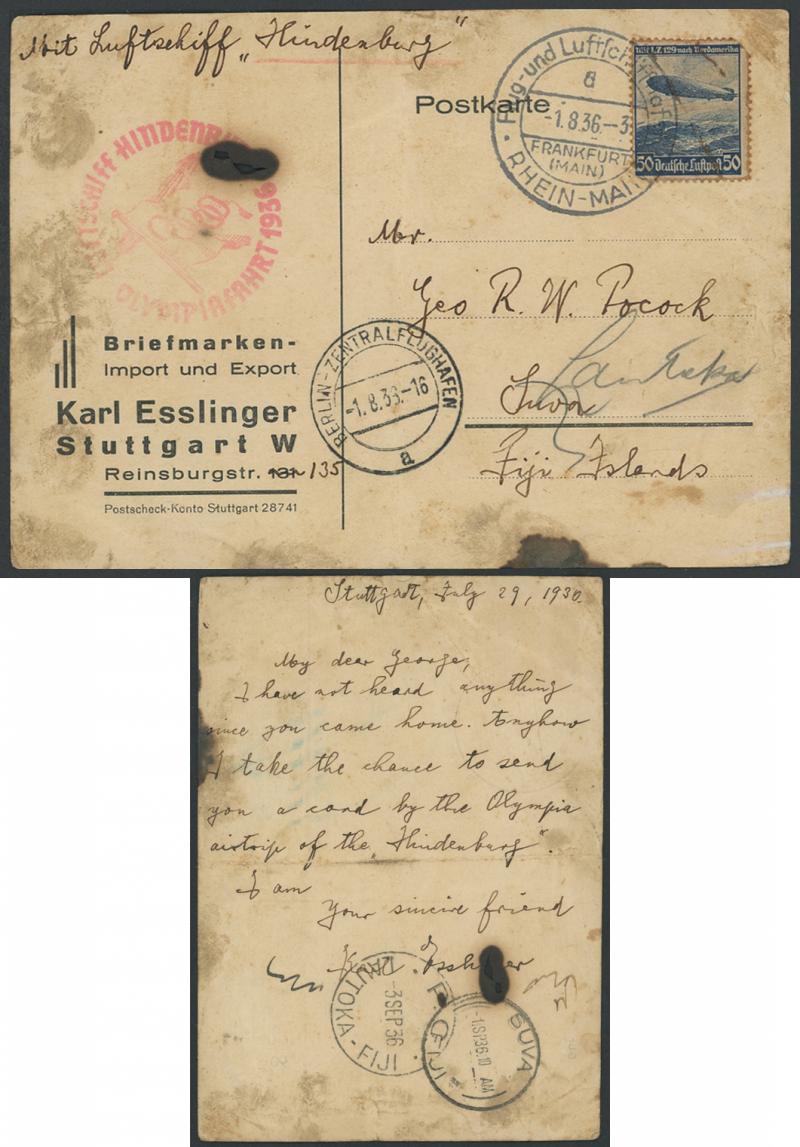 Mit Luftschiff „Hindenburg"
LUFTSCHIFF HINDENBURG
OLYMPIAFAHRT 1936
Flug- und Luftschiffhafen
a
-1.8.36.-3
FRANKFURT
(MAIN)
RHEIN-MAIN
Mit LZ 129 nach Nordamerika
50 Deutsche Luftpost 50
Postkarte
Mr.
Geo R. W. Pocock
Suva
Lautoka
Fiji Islands
Briefmarken-
Import und Export
Karl Esslinger
Stuttgart W
Reinsburgstr. 131 135
Postscheck-Konto Stuttgart 28741
BERLIN-ZENTRALFLUGHAFEN
-1.8.36.-16
a
Stuttgart, July 29, 1936.
My dear George,
I have not heard anything
since you came home. Anyhow
I take the chance to send
you a card by the Olympia
airtrip of the „Hindenburg".
I am
Your sincire friend
Karl Esslinger
LAUTOKA-FIJI
-3 SEP 36
G.P.O. SUVA
-1.SP36.10 AM
FIJI